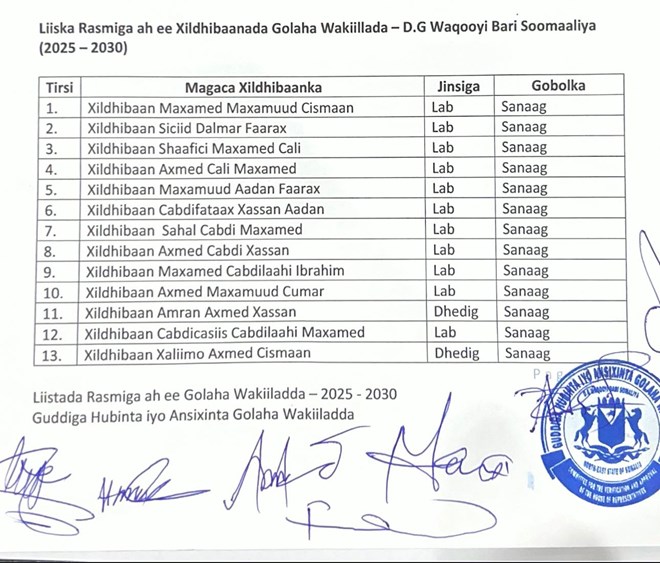 Liiska Rasmiga ah ee Xildhibaanada Golaha Wakiillada – D.G Waqooyi Bari Soomaaliya
(2025 – 2030)
Tirsi Magaca Xildhibaanka Jinsiga Gobolka
1. Xildhibaan Maxamed Maxamuud Cismaan Lab Sanaag
2. Xildhibaan Siciid Dalmar Faarax Lab Sanaag
3. Xildhibaan Shaafici Maxamed Cali Lab Sanaag
4. Xildhibaan Axmed Cali Maxamed Lab Sanaag
5. Xildhibaan Maxamuud Aadan Faarax Lab Sanaag
6. Xildhibaan Cabdifataax Xassan Aadan Lab Sanaag
7. Xildhibaan Sahal Cabdi Maxamed Lab Sanaag
8. Xildhibaan Axmed Cabdi Xassan Lab Sanaag
9. Xildhibaan Maxamed Cabdilaahi Ibrahim Lab Sanaag
10. Xildhibaan Axmed Maxamuud Cumar Lab Sanaag
11. Xildhibaan Amran Axmed Xassan Dhedig Sanaag
12. Xildhibaan Cabdicasiis Cabdilaahi Maxamed Lab Sanaag
13. Xildhibaan Xaliimo Axmed Cismaan Dhedig Sanaag
Liistada Rasmiga ah ee Golaha Wakiiladda – 2025 - 2030
Guddiga Hubinta iyo Ansixinta Golaha Wakiiladda
GUDDIGA HUBINTA IYO ANSIXINTA GOLAHA
NORTH-EAST STATE OF SOMALIA
COMMITTEE FOR THE VERIFICATION AND APPROVAL
OF THE HOUSE OF REPRESENTATIVES